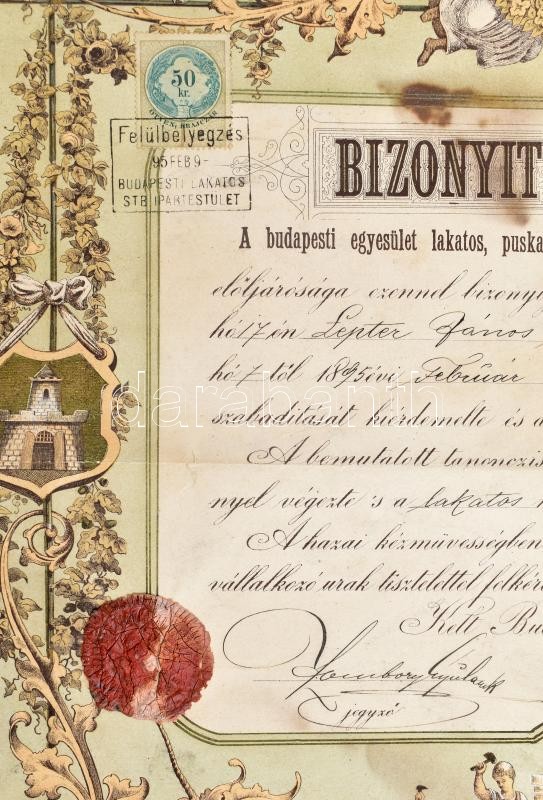 50
kr.
ÖTVEN KRAJCZÁR
Felülbélyegzés
95 FEB 9-
BUDAPESTI LAKATOS
STB IPARTESTÜLET
BIZONYIT
A budapesti egyesület lakatos, puska
előljárósága ezennel bizonyi
hó 17 én Lepter János
hó 7 től 1895 évi Február
darabanth
szabadítását kiérdemelte és a
A bemutatott tanonczis
nyel végezte 's a lakatos
A hazai kézművességben
vállalkozó urak tisztelettel felkér
Kelt Bu
jegyző